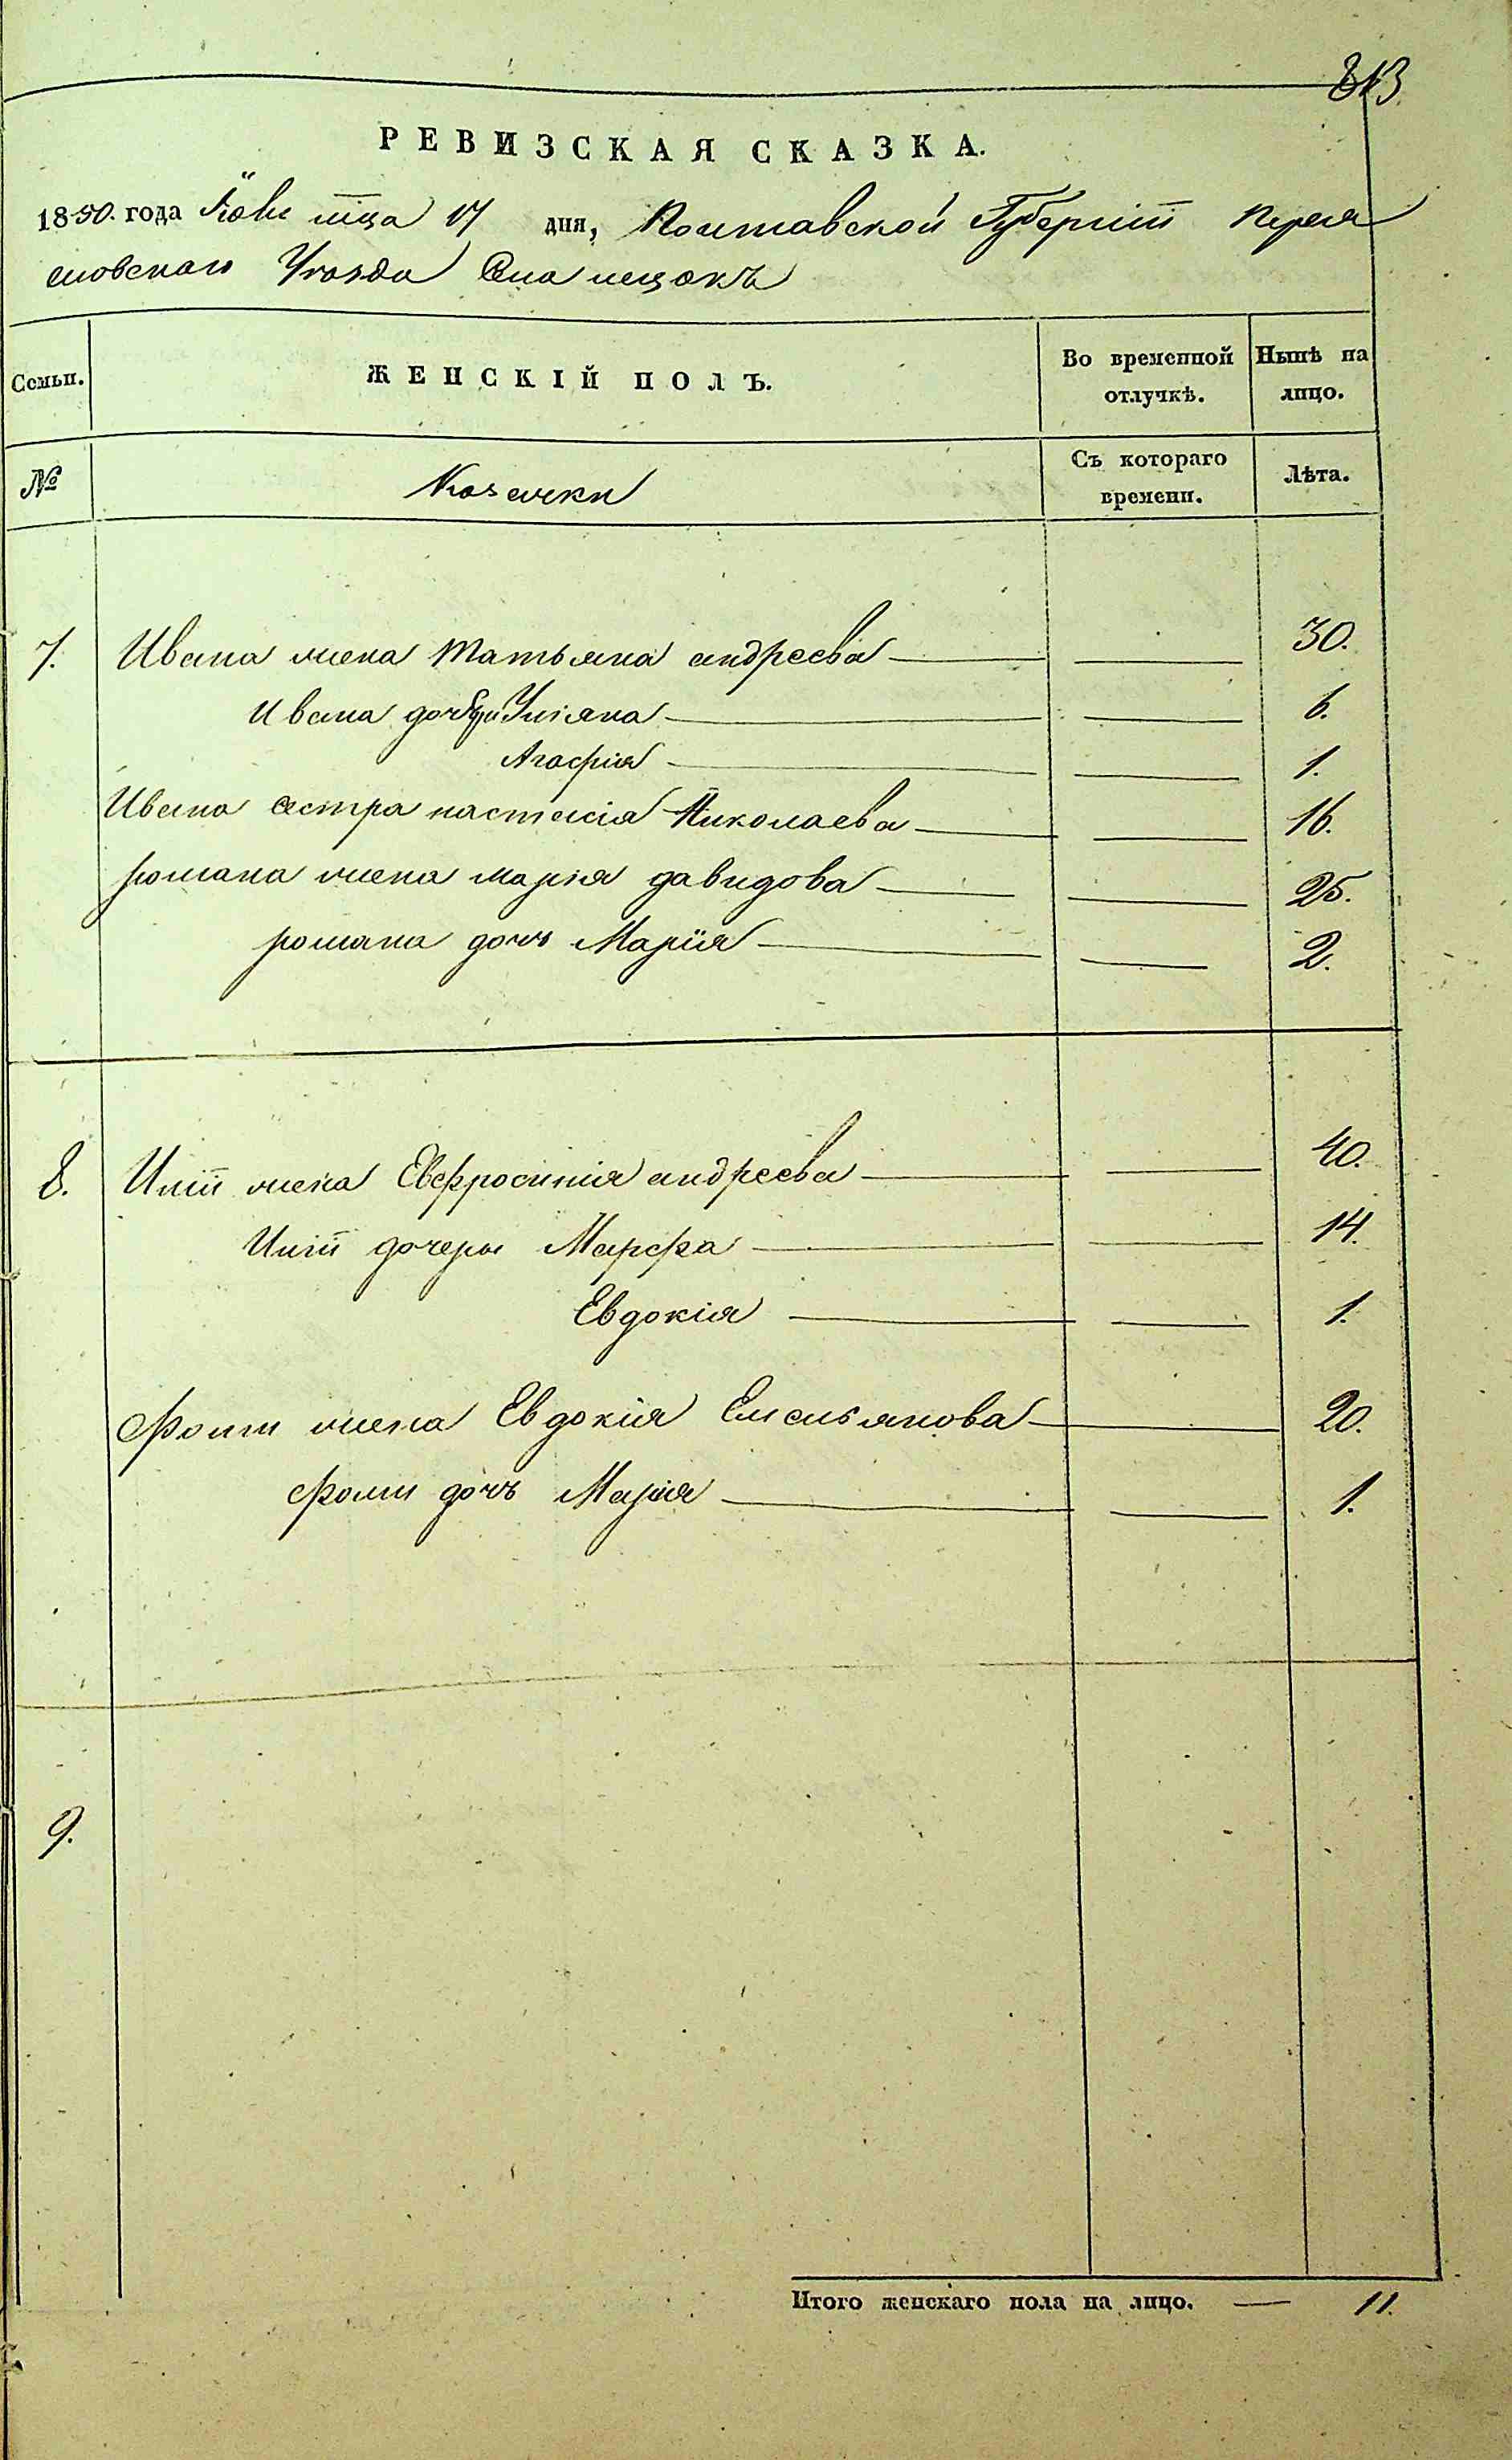 813
РЕВИЗСКАЯ СКАЗКА.
1850. года мца 17 дня, Полтавской Губерніи Перея
словскаго Уезда Села
Семьи. ЖЕНСКІЙ ПОЛЪ. Во временной отлучкѣ. Нынѣ на лицо.
№ Козачки Съ котораго времени. Лѣта.
7. Ивана жена татьяна андреева 30.
Ивана Уліяна 6.
Агафія 1.
Ивана сестра настасія Николаева 16.
романа жена марія давидова 25.
романа дочь Марія 2.
8. Иліи жена Евфросинія андреева 40.
Иліи дочеры Марфа 14.
Евдокія 1.
Фомы жена Евдокія Емельянова 20.
Фомы дочь Марія 1.
9.
Итого женскаго пола на лицо. — 11.